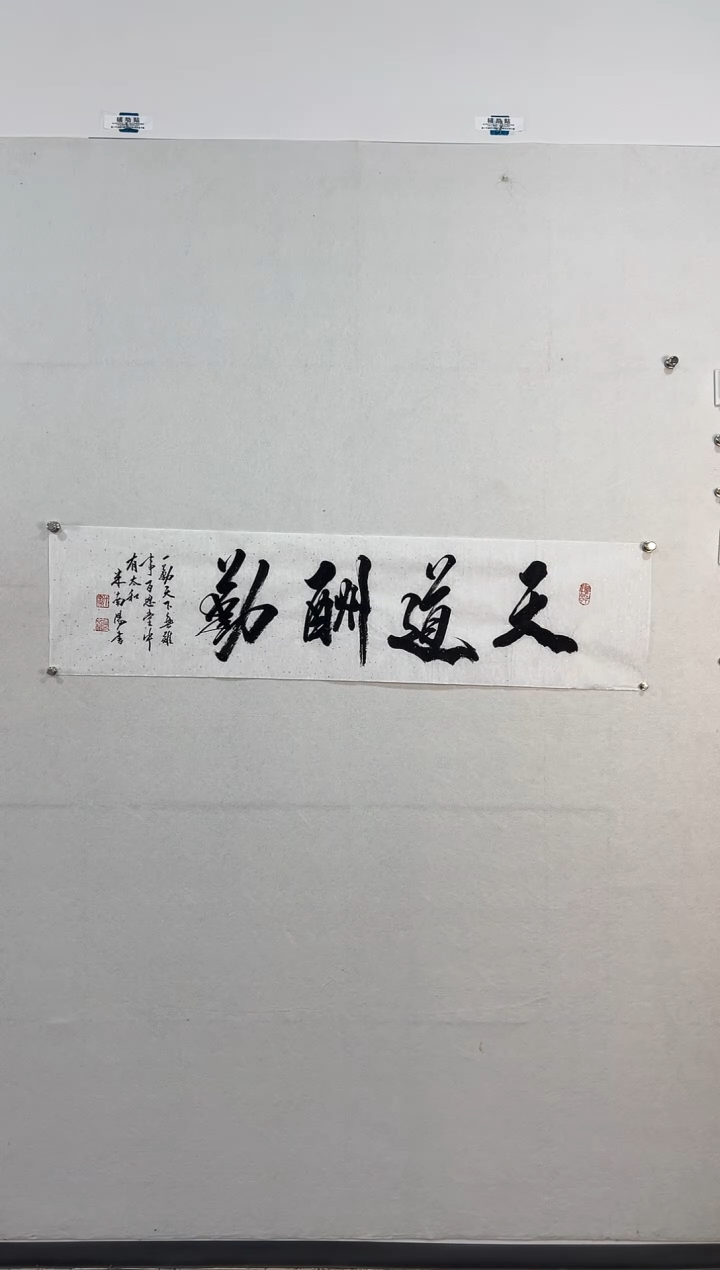 天道酬勤
一勤天下無難
事百忍堂中
有太和
朱南陽書